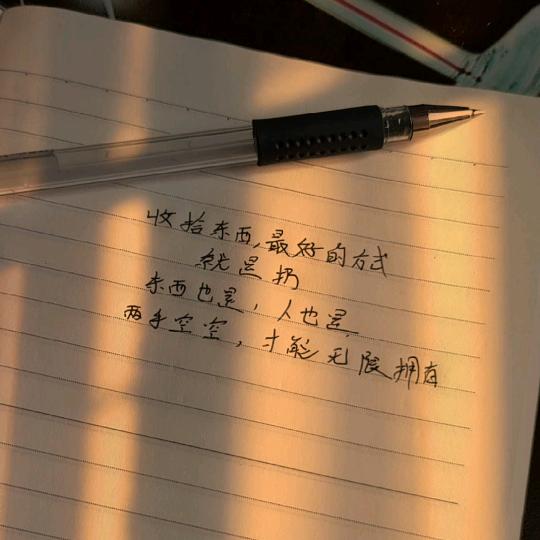 收拾东西,最好的方式
就是扔
东西也是,人也是
两手空空,才能无限拥有